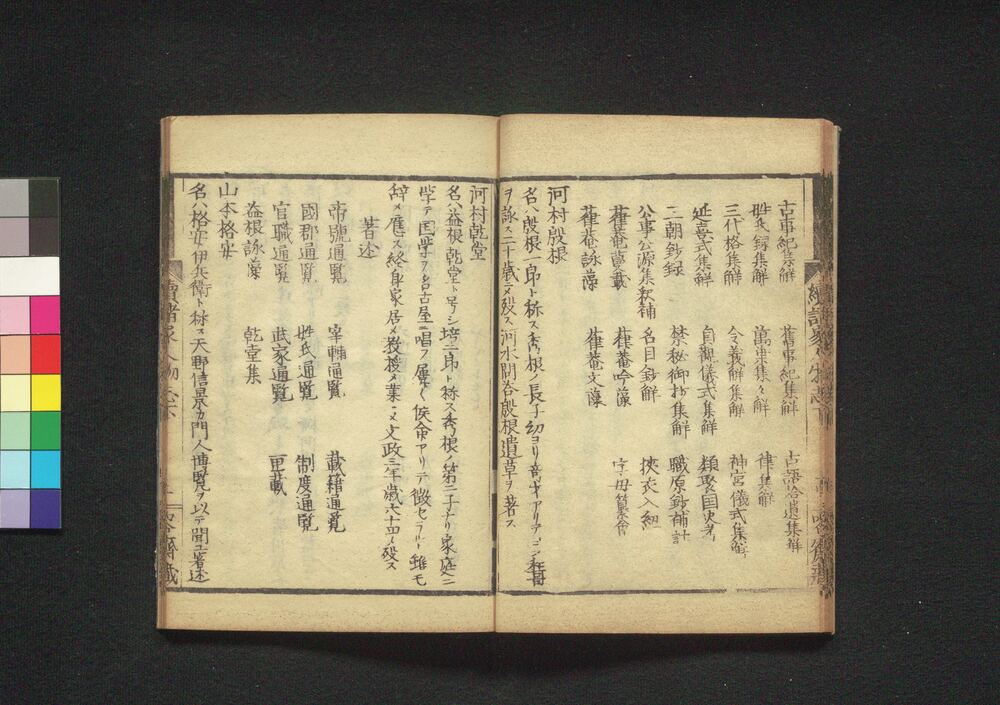 古事紀集解 舊事紀集解 古語拾遺集解
姓氏録集解 萬葉集々解 律集解
三代格集解 令義解集解 神宮儀式集解
延喜式集解 貞觀儀式集解 類聚国史考
二朝鈔録 禁秘御抄集解 職原鈔補註
公事公源集釈補 名目鈔解 挾衣入紐
葎菴菴叢載 葎菴吟藻 字母篹會
葎菴詠藻 葎菴文藻
河村殷根
名ハ殷根一郎ト称ス秀根ノ長子幼ヨリ奇才アリテ
ヲ詠ス二十歳ニメ殁ス河水問答殷根遺草ヲ著ス
河村乾堂
名ハ益根乾堂ト号シ培二郎ト称ス秀根ノ第二子ナリ家庭ニ
学テ国学ヲ名古屋ニ唱フ屡〱侯命アリテ徴セラルト雖モ
辞メ應ス終身家居メ教授メ業ニメ文政二年歳六十四メ殁ス
著述
帝號通覧 宰輔通覧 載籍通覧
國郡通覧 姓氏通覧 制度通覧
官職通覧 武家通覧 叓載
益根詠藻 乾堂集
山本格安
名ハ格安伊兵衛ト称ス天野信景カ門人博覧ヲ以テ聞ユ著述
續諸家人物志下